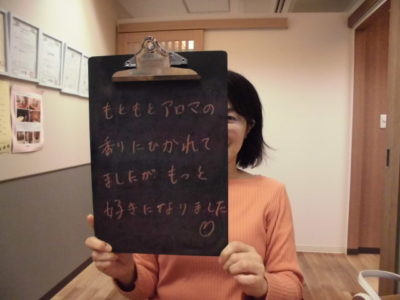 もともとアロマの
香りにひかれて
ましたが もっと
好きになりました